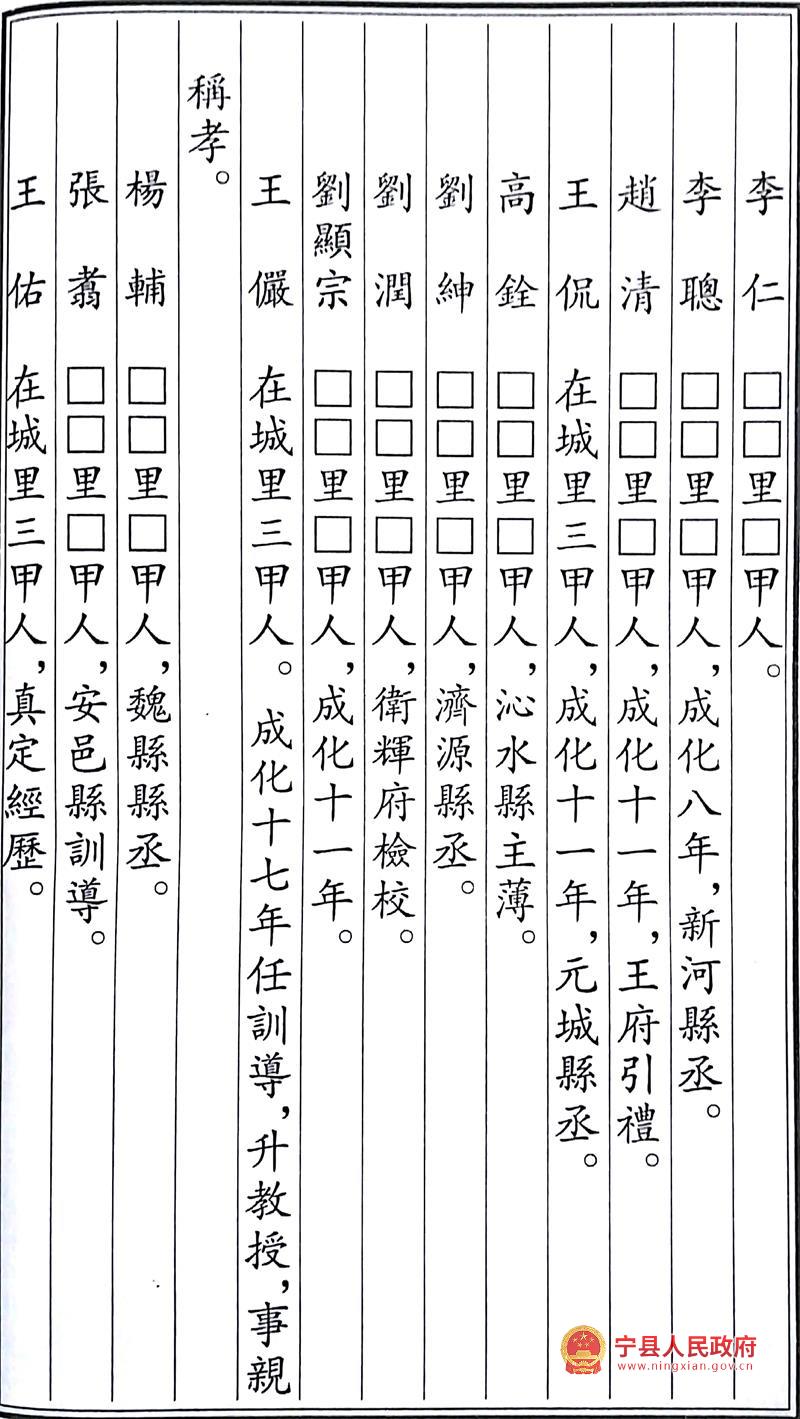 李仁 □□里□甲人。
李聰 □□里□甲人,成化八年,新河縣丞。
趙清 □□里□甲人,成化十一年,王府引禮。
王侃 在城里三甲人,成化十一年,元城縣丞。
高銓 □□里□甲人,沁水縣主薄。
劉紳 □□里□甲人,濟源縣丞。
劉潤 □□里□甲人,衛輝府檢校。
劉顯宗 □□里□甲人,成化十一年。
王儼 在城里三甲人。成化十七年任訓導,升教授,事親
稱孝。
楊輔 □□里□甲人,魏縣縣丞。
張翥 □□里□甲人,安邑縣訓導。
王佑 在城里三甲人,真定經歷。
宁县人民政府
www.ningxian.gov.cn